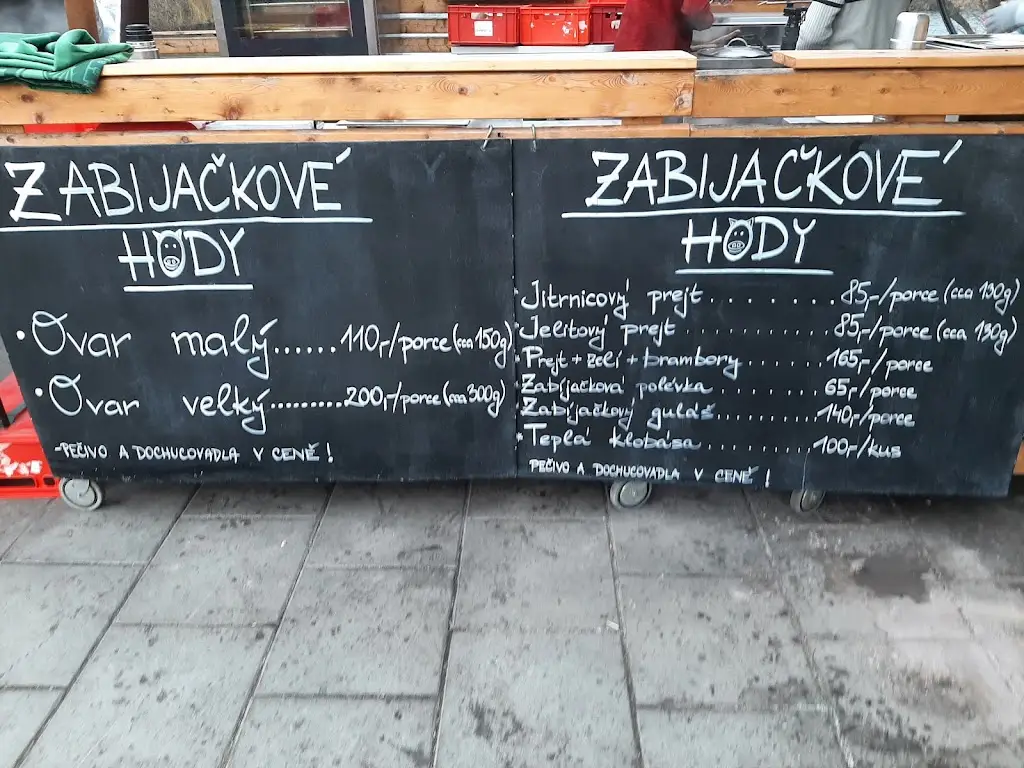 ZABIJAČKOVÉ
HODY
• Ovar malý......110,-/porce (cca 150g)
• Ovar velký.........200,-/porce (cca 300g)
-PEČIVO A DOCHUCOVADLA V CENĚ!
ZABIJAČKOVÉ
HODY
• Jitrnicový prejt........85,-/porce (cca 130g)
• Jelitový prejt..........85,-/porce (cca 130g)
• Prejt + zelí + brambory.......165,-/porce
• Zabijačková polévka.........65,-/porce
• Zabijačkový guláš.........140,-/porce
• Teplá klobása..........100,-/kus
PEČIVO A DOCHUCOVADLA V CENĚ!